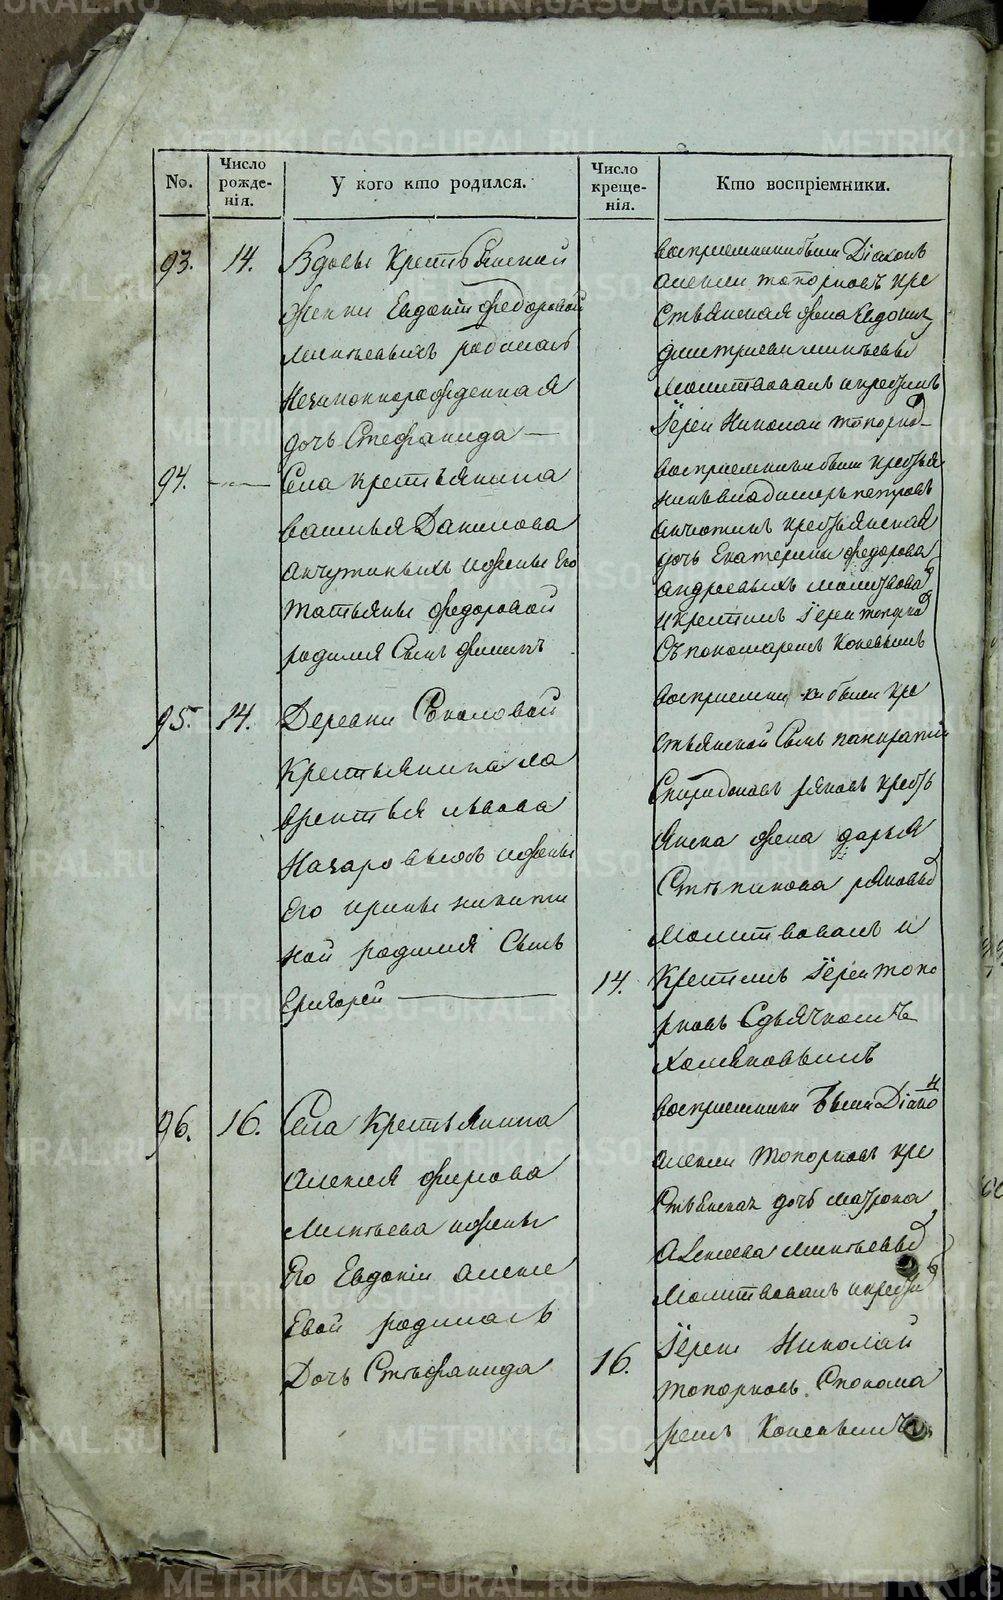 No.
Число
рожде-
нія.
У кого кто родился.
Число
креще-
нія.
Кто воспріемники.
93.
14.
Вдовы крестьянской
женки Евдокіи Федоровой
Ментьевыхъ родилась
незаконнорожденная
дочь Стефанида —
воспріемники были Діаконъ
Алексѣй Топорковъ кре
стьянская жена Евдокія
Дмитриева Ментьевы
Молитвовалъ и крестилъ
Іерей Николай Топорко
94.
Села крестьянина
Василья Данилова
Анчутиныхъ и жены Его
Татьяны Федоровой
родился Сынъ Филипъ
воспріемники были крестья
нинъ Владимеръ Петровъ
крестьянская
дочь Екатерина Федорова
Андреевыхъ молитвова
и крестилъ Іерей Топорко
Съ пономаремъ Коневымъ
95.
14.
Деревни Соколовой
Крестьянина Ла
врентья Львова
Назаровыхъ и жены
Его Ирины Никити
ной родился Сынъ
Григорей
воспріемники были кре
стьянской Сынъ Панкратій
Спиридоновъ Ряковъ кресть
янска жена Дарья
Степанова Ряковы
Молитвовалъ и
14.
Крестилъ Іерей Топо
рковъ Сдьячкомъ
Хомяковымъ
96.
16.
Села Крестьянина
Алексея Фирсова
Ментьева и жены
Его Евдокіи Алексе
Евой родилась
Дочь Стефанида
воспріемники были Діако
н
Алексѣй Топорковъ кре
стьянская дочь Матрона
Алексеева Ментьевы
Молитвовалъ и крести
Іерей Николай
16.
Топорковъ Спонома
ремъ Коневымъ
METRIKI.GASO-URAL.RU